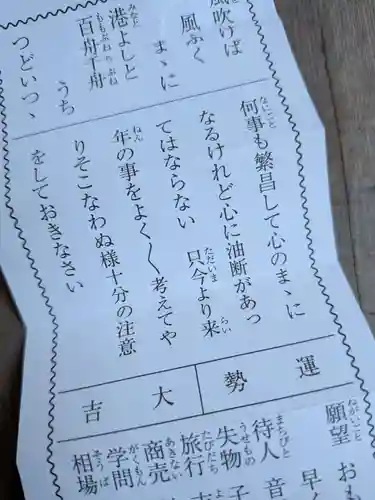 風吹けば
風ふく
まゝに
港よしと
百舟千舟
うち
つどいつゝ
何事も繁昌して心のまゝに
なるけれど心に油断があっ
てはならない 只今より来
年の事をよく〱考えてや
りそこなわぬ様十分の注意
をしておきなさい
運勢 大吉
願望 お
早
待人 音
失物 子
旅行
商売
学問
相場